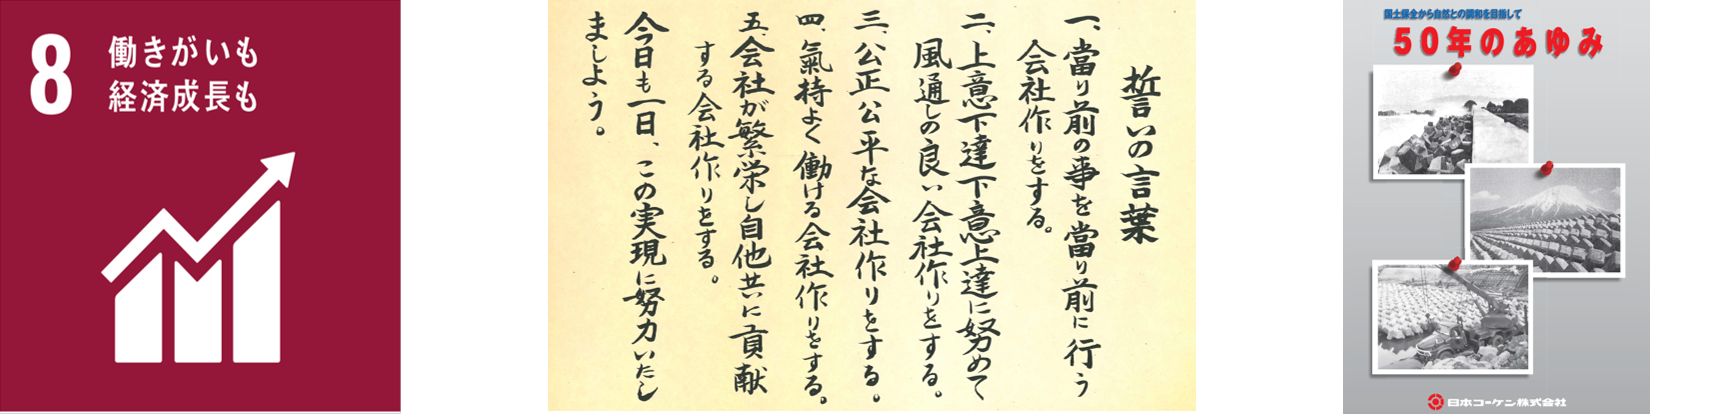 8
働きがいも
経済成長も
誓いの言葉
一、當り前の事を當り前に行う
会社作りをする。
二、上意下達下意上達に努めて
風通しの良い会社作りをする。
三、公正公平な会社作りをする。
四、氣持よく働ける会社作りをする。
五、会社が繁栄し自他共に貢献
する会社作りをする。
今日も一日、この実現に努力いたし
ましょう。
国土保全から自然との調和を目指して
50年のあゆみ
日本コーケン株式会社